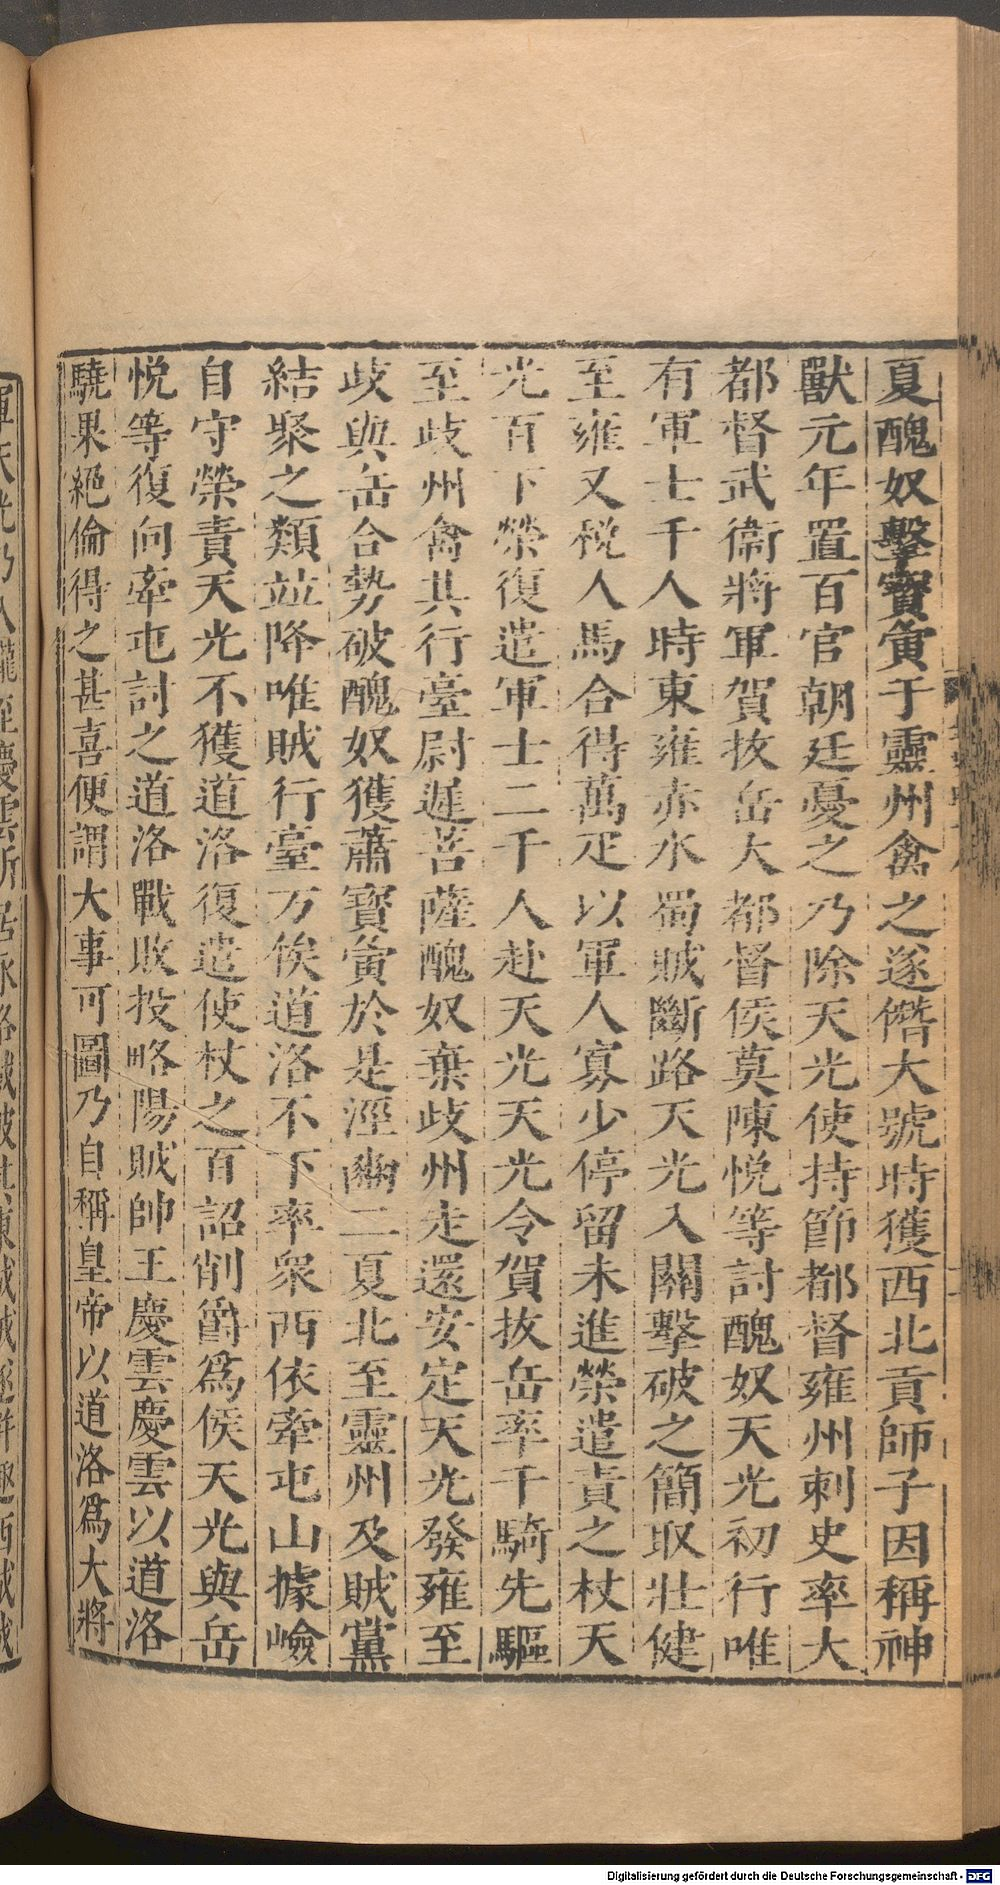 夏醜奴擊寶夤于靈州禽之遂僭大號時獲西北貢師子因稱神
獸元年置百官朝廷憂之乃除天光使持節都督雍州刺史率大
都督武衞將軍賀拔岳大都督侯莫陳悅等討醜奴天光初行唯
有軍士千人時東雍赤水蜀賊斷路天光入關擊破之簡取壯健
至雍又稅人馬合得萬疋以軍人寡少停留未進榮遣責之杖天
光百下榮復遣軍士二千人赴天光天光令賀拔岳率千騎先驅
至歧州禽其行臺尉遲菩薩醜奴棄歧州走還安定天光發雍至
歧與岳合勢破醜奴獲蕭寶夤於是涇豳二夏北至靈州及賊黨
結聚之類竝降唯賊行臺万俟道洛不下率衆西依牽屯山據嶮
自守榮責天光不獲道洛復遣使杖之百詔削爵爲侯天光與岳
悅等復向牽屯討之道洛戰敗投略陽賊帥王慶雲慶雲以道洛
驍果絕倫得之甚喜便謂大事可圖乃自稱皇帝以道洛爲大將
Digitalisierung gefördert durch die Deutsche Forschungsgemeinschaft - DFG